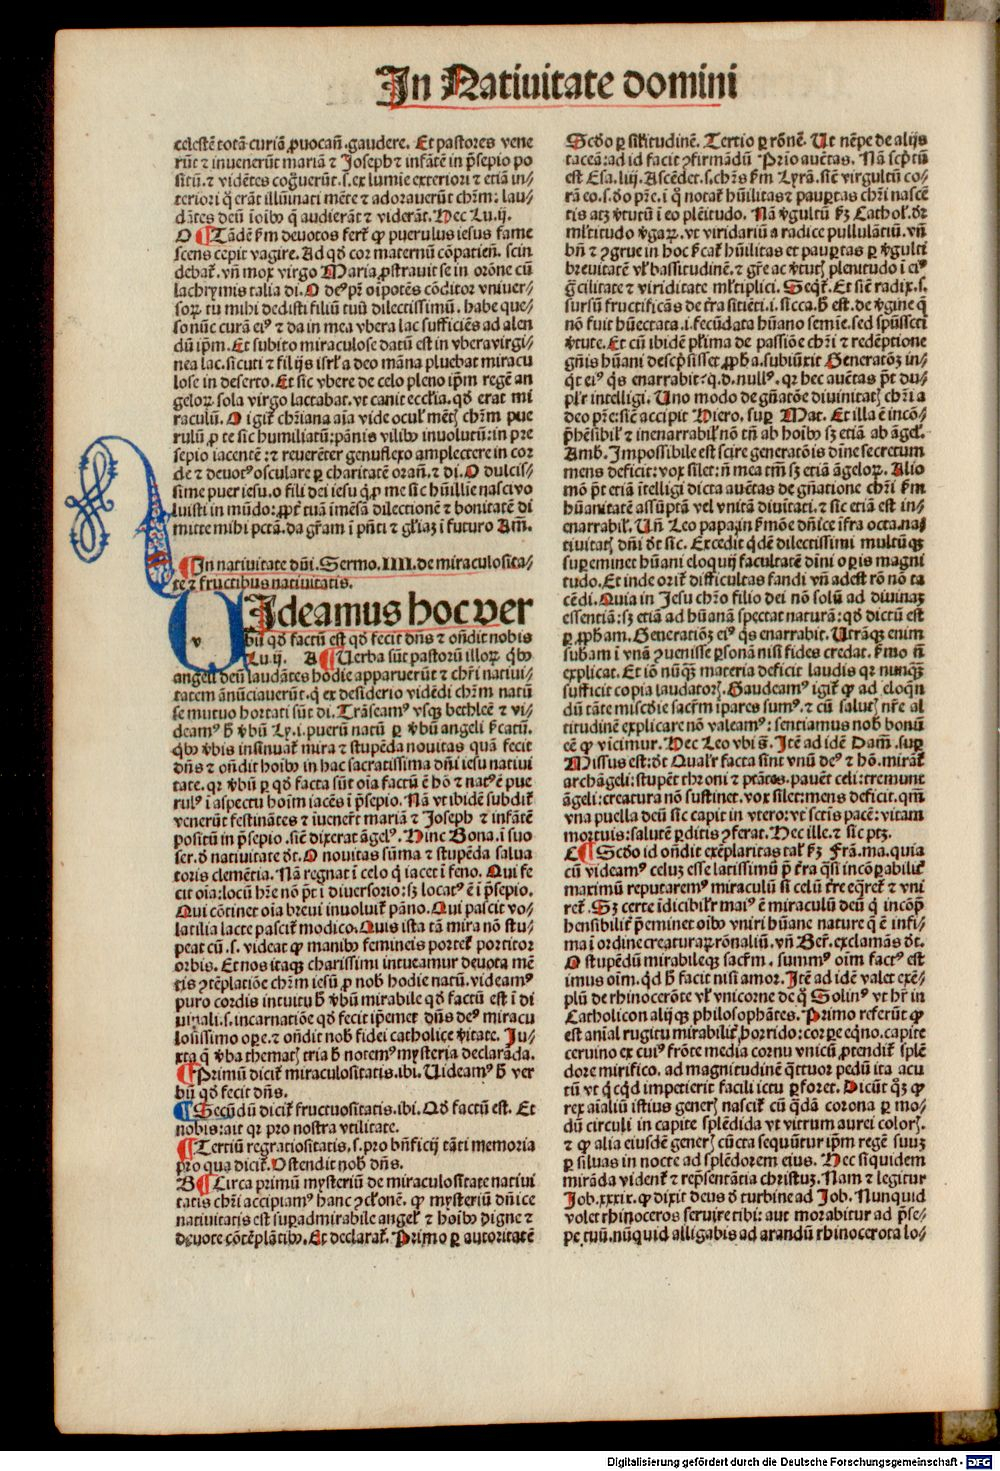 In Natiuitate domini
celestē totā curiā ꝓuocan̄.gaudere. Et pastores vene
rūt ⁊ inuenerūt mariā ⁊ Joseph ⁊ infātē in p̄sepio po
sitū.⁊ vidētes cog̃uerūt.s.ex lumie exteriori ⁊ etiā in⸗
teriori q̄ erāt illūinati mēte ⁊ adorauerūt chr̄m: lau⸗
dātes deū ī oib̄ q̄ audierāt ⁊ viderāt. Hec Lu.ij.
O ¶ Tādē ẜm deuotos ferť ꝙ puerulus iesus fame
scens cepit vagire. Ad qd̄ cor maternū cōpatien̄. scin
debať. vn̄ mox virgo Maria ꝓstrauit se in orōne cū
lachrymis talia di. O deꝰ pr̄ oīpotēs cōditor vniuer⸗
soꝝ tu mihi dedisti filiū tuū dilectissimū. habe que⸗
so nūc curā eiꝰ ⁊ da in mea vbera lac sufficiēs ad alen
dū ip̄m. Et subito miraculose datū est in vbera virgi⸗
nea lac. sicuti ⁊ filijs isrł a deo māna pluebat miracu
lose in deserto. Et sic vbere de celo pleno ip̄m regē an
geloꝝ sola virgo lactabat. vt canit ecclīa. qd̄ erat mi
raculū. O igiť chr̄iana aīa vide oculꝭ mētꝭ chr̄m pue
rulū ꝓ te sic humiliatū: pānis vilib̄ inuolutū: in pre
sepio iacentē: ⁊ reuerēter genuflexo amplectere in cor
de ⁊ deuotꝰ osculare ꝑ charitatē oran̄. ⁊ di. O dulcis⸗
sime puer iesu. o fili dei iesu q̄ ꝓ me sic hūillie nasci vo
luisti in mūdo: ꝓpť tuā imēsā dilectionē ⁊ bonitatē di
mitte mihi pctā. da gr̄am ī pn̄ti ⁊ gl̄iaz ī futuro Am̄.
¶ In natiuitate dn̄i. Sermo.IIII. de miraculosita⸗
te ⁊ fructibus natiuitatis.
v Ideamus hoc ver
bū qd̄ factū est qd̄ fecit dn̄s ⁊ on̄dit nobis
Lu.ij. A ¶ Uerba sūt pastorū illoꝝ qb̄
angeli deū laudātes hodie apparuerūt ⁊ chr̄i natiui⸗
tatem ānūciauerūt. q̄ ex desiderio vidēdi chr̄m natū
se mutuo hortati sūt di. Trāseamꝰ vsqꝫ bethleē ⁊ vi⸗
deamꝰ ħ vbū Ly.i. puerū natū ꝑ vbū angeli ẜcatū.
qb̄ vbis insinuať mira ⁊ stupēda nouitas quā fecit
dn̄s ⁊ on̄dit hoib̄ in hac sacratissima dn̄i iesu natiui
tate. qr vbū ꝑ qd̄ facta sūt oīa factū ē hō ⁊ natꝰ ē pue
rulꝰ ī aspectu hoīm iacēs ī p̄sepio. Nā vt ibidē subdiť
venerūt festinātes ⁊ iuenerť mariā ⁊ Joseph ⁊ infātē
positū in p̄sepio. siē dixerat āgelꝰ. Hinc Bona. ī suo
ser. ď natiuitate dt. O nouitas sūma ⁊ stupēda salua
toris clemētia. Nā regnat ī celo q̄ iacet ī feno. Qui fe
cit oīa: locū hr̄e nō pt̄ ī diuersorio: sꝫ locatꝰ ē ī p̄sepio.
Qui cōtinet oīa breui inuoluiť pāno. Qui pascit vo⸗
latilia lacte pasciť modico. Quis ista tā mira nō stu⸗
peat cū .s. videat ꝙ manib̄ femineis porteť portitor
orbis. Et nos itaqꝫ charissimi intueamur deuota mē
tis ꝯtēplatiōe chr̄m iesū ꝓ nob̄ hodie natū. videamꝰ
puro cordis intuitu ħ vbū mirabile qd̄ factū est ī di
uinali.s. incarnatiōe qd̄ fecit ip̄emet dn̄s deꝰ miracu
losissimo oꝑe. ⁊ on̄dit nob̄ fidei catholice v̄itate. Ju⸗
xta q̄ vba thematꝭ tria ħ notemꝰ mysteria declarāda.
¶ Primū diciť miraculositatis. ibi. Uideamꝰ ħ ver
bū qd̄ fecit dn̄s.
¶ Secūdū diciť fructuositatis. ibi. Qd̄ factū est. Et
nobis: ait qr pro nostra vtilitate.
¶ Tertiū regratiositatis.s. pro bn̄ficij tāti memoria
pro qua diciť. Ostendit nob̄ dn̄s.
B ¶ Circa primū mysteriū de miraculositate natiui
tatis chr̄i accipiamꝰ hanc ꝯclonē. ꝙ mysteriū dn̄ice
natiuitatis est suꝑadmirabile angeľ ⁊ hoib̄ digne ⁊
deuote cōtēplātib̄. Et declarať. Primo ꝑ autoritatē
Scd̄o ꝑ silitudinē. Tertio ꝑ rōnē. Ut nēpe de alijs
taceā: ad id facit ꝯfirmādū Prīo auc̄tas. Nā scp̄tū
est Esa.liij. Ascēdet.s. chr̄s ẜm Lyrā. siē virgultū co⸗
rā eo.s. do pr̄e. ī q̄ notať hūilitas ⁊ pauꝑtas chr̄i nascē
tis atqꝫ v̄tutū ī eo plēitudo. Nā v̄gultū ẜꝫ Cathoľ. dr̄
mľtitudo v̄gaꝝ. vt viridariū a radice pullulātiū. vn̄
bn̄ ⁊ ꝯgrue in hoc ẜcať hūilitas et pauꝑtas ꝑ v̄gulti
breuitatē vľ bassitudinē. ⁊ gr̄e ac v̄tutꝭ plenitudo ī eiꝰ
g̃cilitate ⁊ viriditate mľtiplici. Seqť. Et siē radix.s.
sursū fructificās de tr̄a sitiēti.i. sicca. ħ est. de v̄gine q̄
nō fuit hūectata.i. fecūdata hūano semīe. sed sp̄ūsscti
v̄tute. Et cū ibidē pľima de passiōe chr̄i ⁊ redēptione
gn̄is hūani descp̄sisset ꝓpha. subiūxit Generatōꝫ in⸗
q̄t eiꝰ q̄s enarrabit? q.d. nullꝰ. qr hec auc̄tas pt̄ du⸗
plr̄ intelligi. Uno modo de gn̄atōe diuinitatꝭ chr̄i a
deo pr̄e: siē accipit Hiero. suꝑ Mat. Et illa ē incō⸗
p̄hēsibiľ ⁊ inenarrabiľ nō tn̄ ab hoib̄ sꝫ etiā ab āgeľ.
Amb. Impossibile est scire generatōis diīne secretum
mens deficit: vox silet: n̄ mea tm̄ sꝫ etiā āgeloꝝ. Alio
mō pt̄ etiā ītelligi dicta auc̄tas de gn̄atione chr̄i ẜm
hūanitatē assūptā vel vnitā diuītati. ⁊ sic etiā est in⸗
enarrabiľ. Un̄ Leo papa in ẜmōe dn̄ice īfra octa. na⸗
tiuitatꝭ dn̄i dt sic. Excedit q̄dē dilectissimi multū qꝫ
suꝑeminet hūani eloquij facultatē diīni oꝑis magni
tudo. Et inde oriť difficultas fandi vn̄ adest rō nō ta
cēdi. Quia in Jesu chr̄o filio dei nō solū ad diuinaꝫ
essentiā: sꝫ etiā ad hūanā spectat naturā: qd̄ dictū est
ꝑ ꝓpham. Generatiōꝫ eiꝰ q̄s enarrabit. Utrāqꝫ enim
subam ī vnā ꝯuenisse ꝑsonā nisi fides credat. ẜmo n̄
explicat. Et iō nūqꝫ materia deficit laudis qr nunqꝫ
sufficit copia laudatorꝭ. Gaudeamꝰ igiť ꝙ ad eloqn̄
dū tāte misc̄die sacr̄m īpares sumꝰ. ⁊ cū salutꝭ nr̄e al
titudinē explicare nō valeamꝰ: sentiamus nob̄ bonū
eē ꝙ vicimur. Hec Leo vbi s̄. Itē ad idē Dam̄. suꝑ
Missus est: dt Qualr̄ facta sint vnū deꝰ ⁊ hō. mirāť
archāgeli: stupēt thr̄oni ⁊ ptātes. pauēt celi: tremunt
āgeli: creatura nō sustinet. vox silet: mens deficit. qm̄
vna puella deū sic capit in vtero: vt sctīs pacē: vitam
mortuis: salutē ꝑditis ꝯferat. Hec ille. ⁊ sic ptꝫ.
C ¶ Scd̄o id on̄dit exēplaritas tał ẜꝫ Frā. ma. quia
cū videamꝰ celuꝫ esse latissimū p̄ tr̄a q̄si incōꝑabiliť
maximū reputaremꝰ miraculū si celū tr̄e eq̄reť ⁊ vni
reť. Sꝫ certe īdicibilr̄ maiꝰ ē miraculū deū q̄ incōp̄
hensibiliť p̄eminet oīb̄ vniri hūane nature q̄ ē infi⸗
ma ī ordine creaturaꝝ rōnaliū. vn̄ Beř. exclamās dt.
O stupēdū mirabileqꝫ sacr̄m. summꝰ oīm factꝰ est
imus oīm. q̄d ħ facit nisi amor. Itē ad idē valet exē⸗
plū de rhinocerōte vľ vnicorne de q̄ Solinꝰ vt hr̄ in
Catholicon alijqꝫ philosophātes. Primo referūt ꝙ
est anīal rugitu mirabiliť horrido: corꝑe eq̄no. capite
ceruino ex cuiꝰ frōte media cornu vnicū ꝓtendiť splē
dore mirifico. ad magnitudinē q̄ttuor pedū ita acu
tū vt q̄cq̄d impetierit facili ictu ꝑforet. Dicūt qꝫ ꝙ
rex aīaliū istius generꝭ nasciť cū q̄dā corona ꝑ mo⸗
dū circuli in capite splēdida vt vitrum aurei colorꝭ.
⁊ ꝙ alia eiusdē generꝭ cūcta sequūtur ip̄m regē suuꝫ
ꝑ siluas in nocte ad splēdorem eius. Hec siquidem
mirāda videnť ⁊ rep̄sentātia christuꝫ. Nam ⁊ legitur
Job.xxxix. ꝙ dixit deus ď turbine ad Job. Nunquid
volet rhinoceros seruire tibi: aut morabitur ad p̄se⸗
pe tuū. nūquid alligabis ad arandū rhinocerota lo⸗
Digitalisierung gefördert durch die Deutsche Forschungsgemeinschaft - DFG